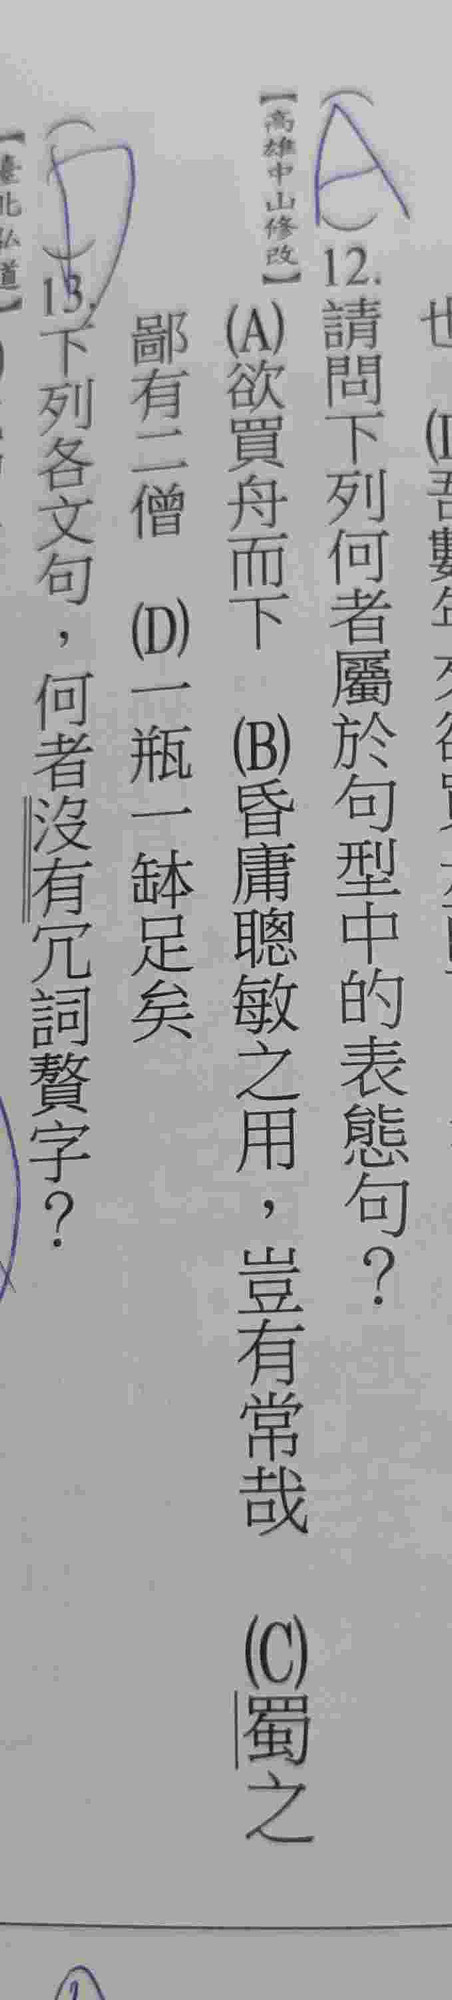 (A)12.請問下列何者屬於句型中的表態句？
【高雄中山修改】
(A)欲買舟而下 (B)昏庸聰敏之用，豈有常哉 (C)蜀之
鄙有二僧 (D)一瓶一缽足矣
(D)13.下列各文句，何者沒有冗詞贅字？
【臺北弘道】